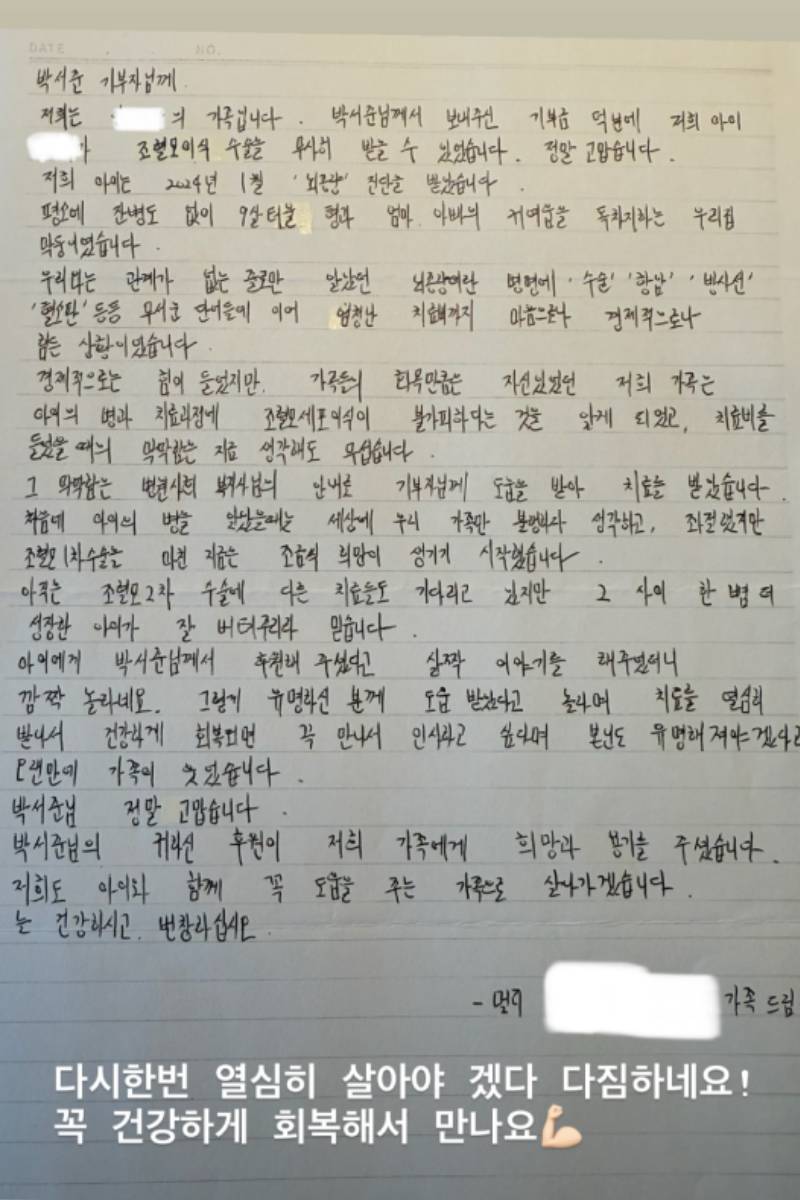 DATE . . NO.
박서준 기부자님께
저희는 의 가족입니다. 박서준님께서 보내주신 기부금 덕분에 저희 아이
가 조혈모이식 수술을 무사히 받을 수 있었습니다. 정말 고맙습니다.
저희 아이는 2024년 1월 '뇌종양' 진단을 받았습니다.
평소에 잔병도 없이 9살 터울 형과 엄마 아빠의 귀여움을 독차지하는 우리집
막둥이였습니다.
우리와는 관계가 없는 줄로만 알았던 뇌종양이란 병명에 '수술' '항암' '방사선'
'혈소판' 등등 무서운 단어들에 이어 엄청난 치료비까지 마음으로나 경제적으로나
힘든 상황이었습니다.
경제적으로는 힘이 들었지만. 가족들의 화목만큼은 자신있었던 저희 가족은
아이의 병과 치료과정에 조혈모세포이식이 불가피하다는 것을 알게 되었고, 치료비를
들었을 때의 막막함은 지금 생각해도 무섭습니다.
그 막막함은 병원사회 복지사님의 안내로 기부자님께 도움을 받아 치료를 받았습니다.
처음에 아이의 병을 알았을때는 세상에 우리 가족만 불행하다 생각하고, 좌절했지만
조혈모 1차수술을 마친 지금은 조금씩 희망이 생기기 시작했습니다.
아직은 조혈모2차 수술에 다른 치료들도 기다리고 있지만 그 사이 한 뼘 더
성장한 아이가 잘 버텨주리라 믿습니다.
아이에게 박서준님께서 후원해 주셨다고 살짝 이야기를 해주었더니
깜짝 놀라네요. 그렇게 유명하신 분께 도움 받았다고 놀라며 치료를 열심히
받아서 건강하게 회복되면 꼭 만나서 인사하고 싶다며 본인도 유명해져야겠다고
오랜만에 가족이 웃었습니다.
박서준님 정말 고맙습니다.
박서준님의 귀하신 후원이 저희 가족에게 희망과 용기를 주셨습니다.
저희도 아이와 함께 꼭 도움을 주는 가족으로 살아가겠습니다.
늘 건강하시고. 번창하십시오.
- 멀리 가족 드림
다시한번 열심히 살아야 겠다 다짐하네요!
꼭 건강하게 회복해서 만나요💪🏻